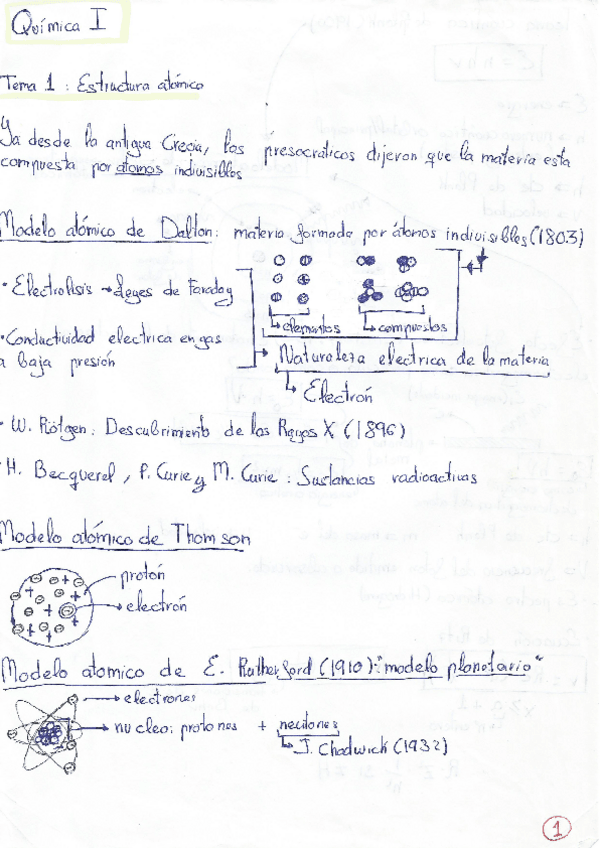 Química I
Tema 1: Estructura atómica
Ya desde la antigua Grecia, los presocráticos dijeron que la materia esta
compuesta por átomos indivisibles
Modelo atómico de Dalton: materia formada por átomos indivisibles (1803)
· Electrolisis → leyes de Faraday
elementos
compuestos
· Conductividad electrica en gas
a baja presión
Naturaleza electrica de la materia
Electrón
· W. Rötgen: Descubrimiento de los Rayos X (1896)
· H. Becquerel, P. Curie y M. Curie: Sustancias radioactivas
Modelo atómico de Thomson
protón
electrón
Modelo atomico de E. Rutherford (1910): "modelo planetario"
electrones
nucleo: protones + neutones
J. Chadwick (1932)
1